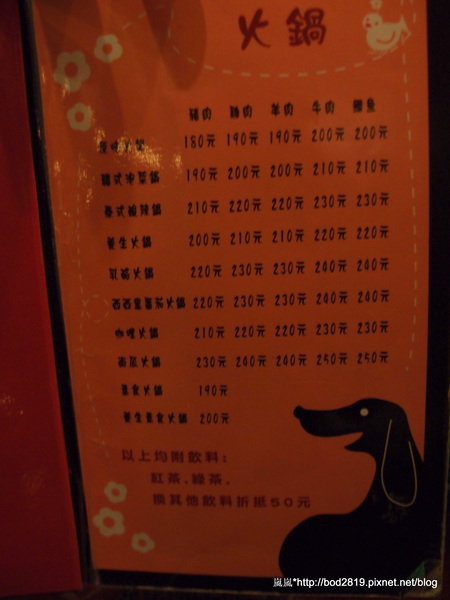 火鍋
豬肉 雞肉 羊肉 牛肉 鯛魚
原味火鍋 180元 190元 190元 200元 200元
韓式泡菜鍋 190元 200元 200元 210元 210元
泰式酸辣鍋 210元 220元 220元 230元 230元
養生火鍋 200元 210元 210元 220元 220元
乳酪火鍋 220元 230元 230元 240元 240元
220元 230元 230元 240元 240元
咖哩火鍋 210元 220元 220元 230元 230元
南瓜火鍋 230元 240元 240元 250元 250元
素食火鍋 190元
養生素食火鍋 200元
以上均附飲料:
紅茶.綠茶.
換其他飲料折抵50元
嵐嵐*http://bod2819.pixnet.net/blog